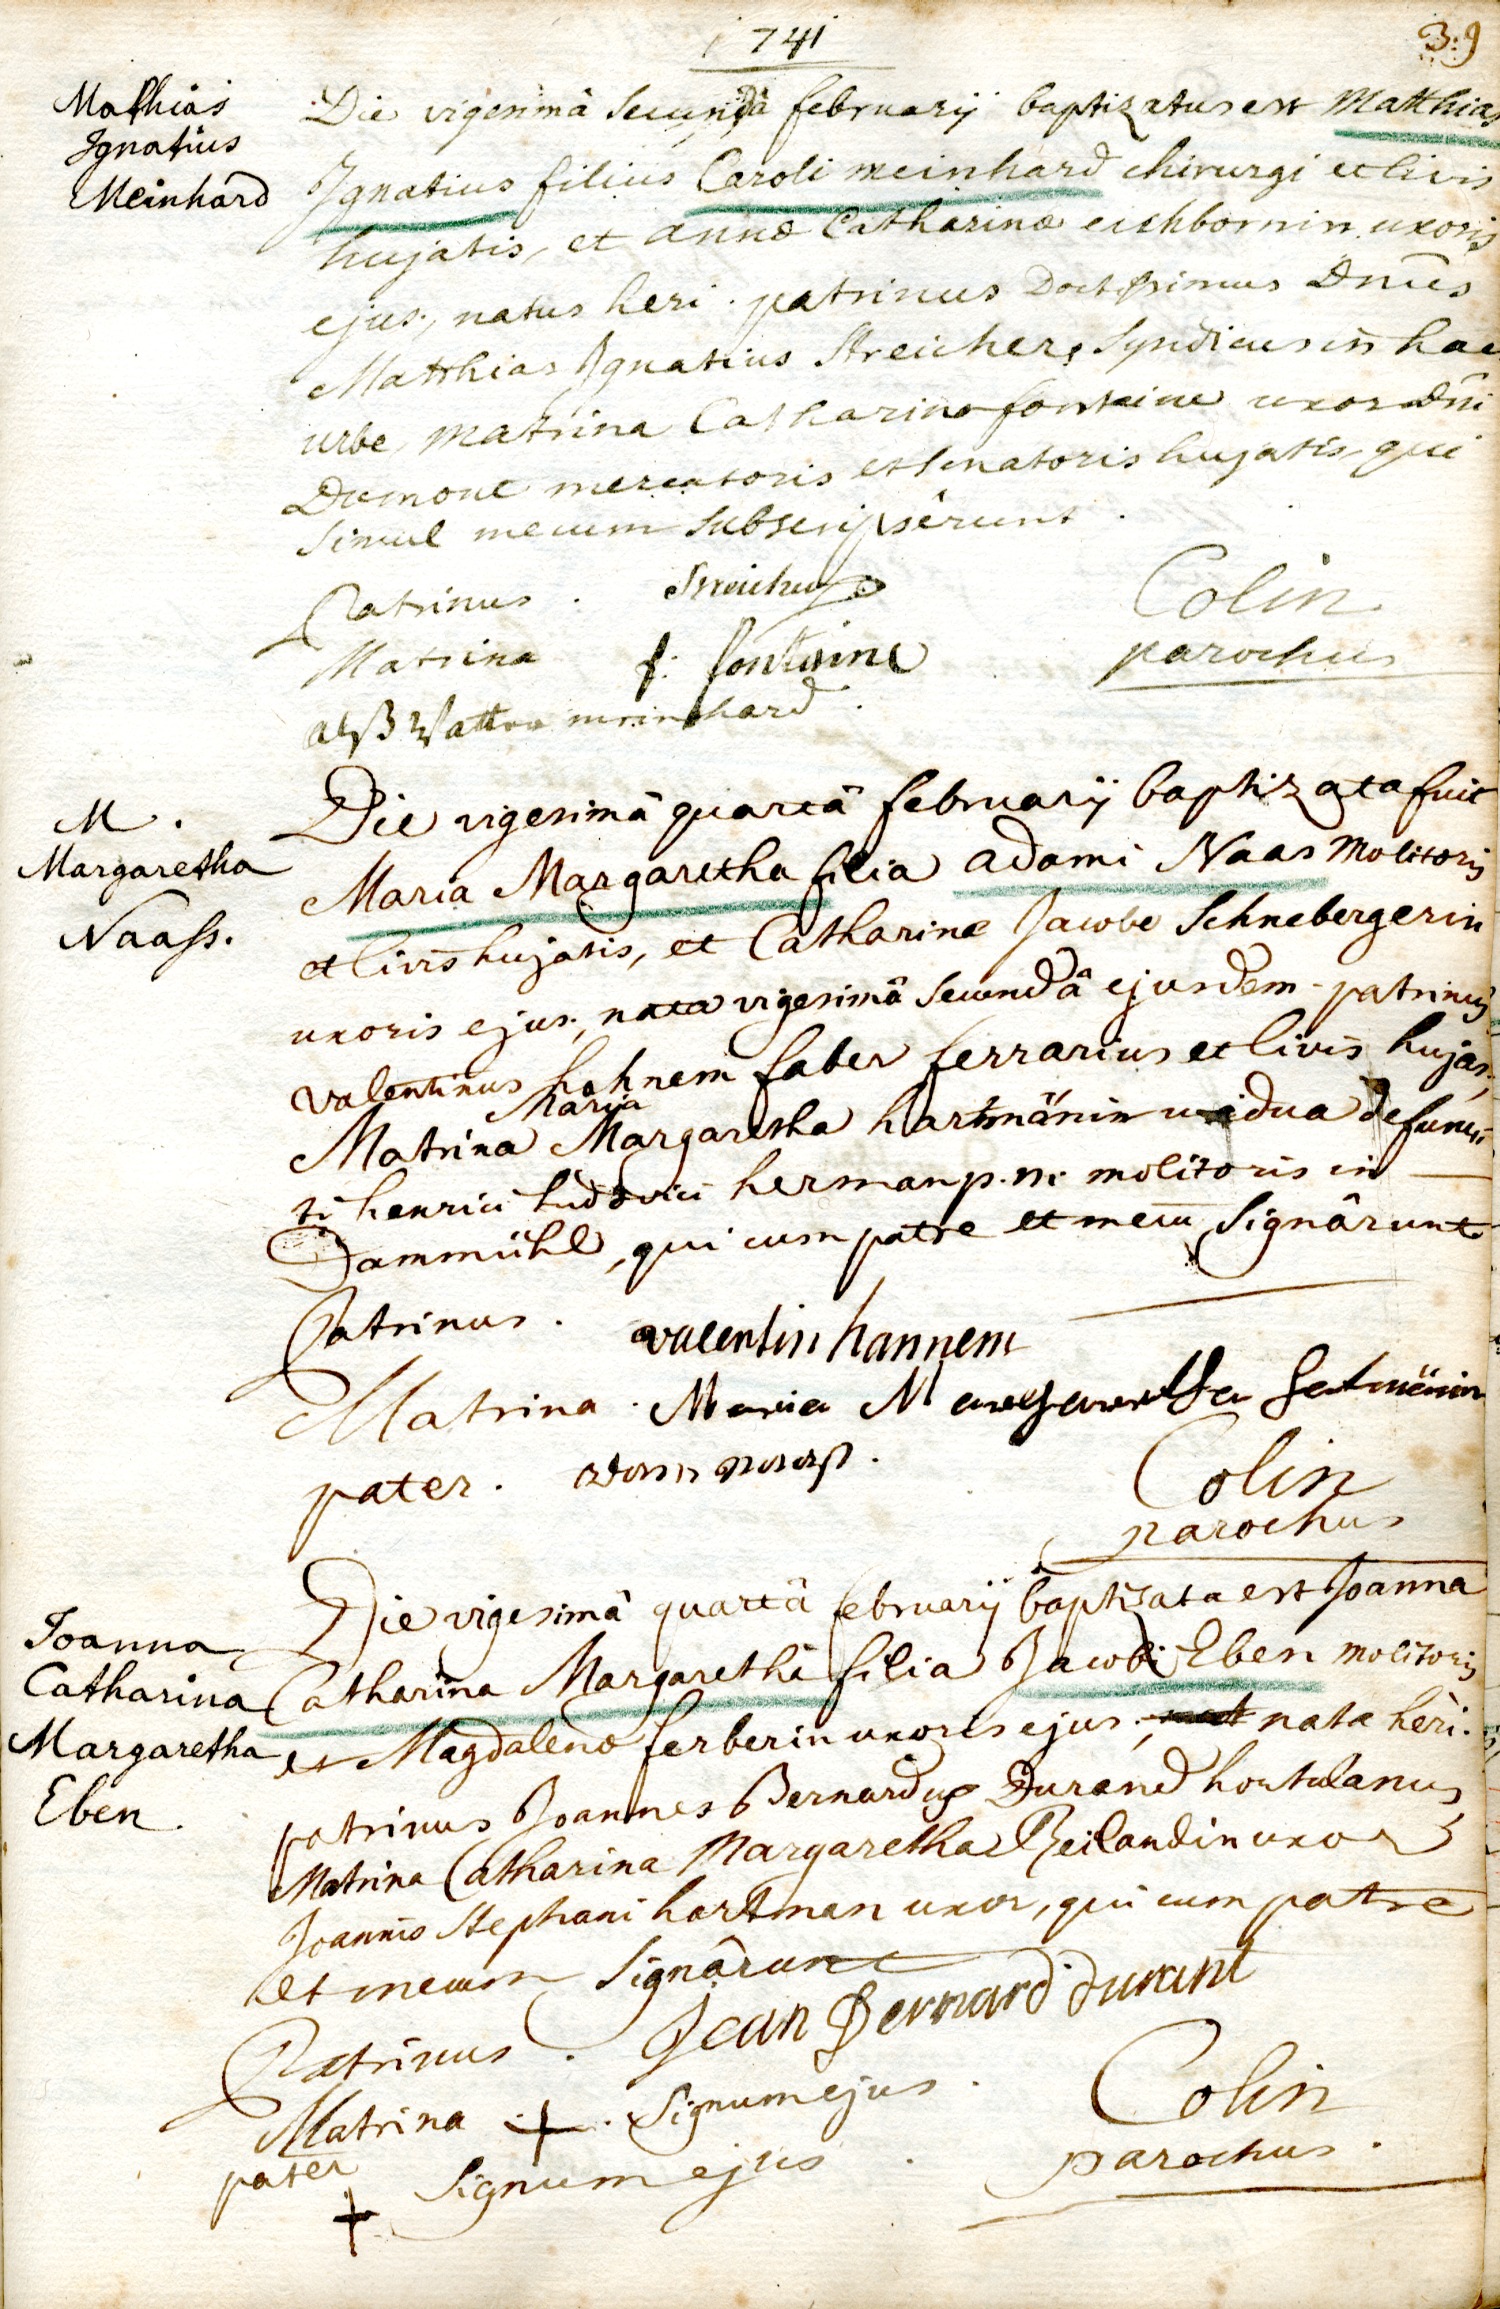 1741
39
Mathias
Ignatius
Meinhard
Die vigesimâ secundâ februarij baptizatus est Matthias
Ignatius filius Caroli meinhard chirurgi et civis
hujatis, et annæ Catharinæ eichbornin uxoris
ejus, natus heri. patrinus Doctissimus Dnūs
Matthias Ignatius Streicher, Syndicus in hac
urbe, matrina Catharina fontaine uxor dn̄i
Dumont mercatoris et senatoris hujatis, qui
simul mecum subscripsêrunt.
Patrinus. Streicher
Matrina f: fontaine
Colin
parochus
alß Vatter meinhard.
M.
Margaretha
Naass.
Die vigesimâ quartâ februarij baptizata fuit
Maria Margaretha filia adami Naas molitoris
et civis hujatis, et Catharinæ Jacobe Schnebergerin
uxoris ejus, nata vigesimâ secundâ ejusdem. patrinus
valentinus hahnem faber ferrarius et civis hujas,
Maria
Matrina Margaretha hartmänin vidua defunc
ti henrici ludovici herman p.m. molitoris in
Dammühl, qui cum patre et mecū signârunt
Patrinus. valentin hannem
Matrina. Maria Margaretha hartmänin
pater. adam naaß.
Colin
parochus
Joanna
Catharina
Margaretha
Eben.
Die vigesimâ quartâ februarij baptizata est Joanna
Catharina Margaretha filia Jacobi Eben molitoris
et Magdalenæ ferberin uxoris ejus, nata heri.
patrinus Joannes Bernardus Durand hortulanus,
Matrina Catharina Margaretha Reilandin uxor
Joannis Stephani hartman uxor, qui cum patre
et mecum signârunt
Patrinus. Jean Bernard durant
Matrina + signum ejus.
pater + signum ejus.
Colin
parochus.